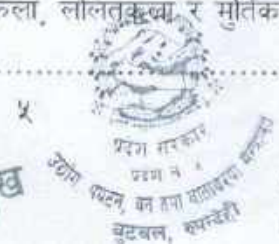 कला, ललितकला र मूर्तिक
५
प्रदेश सरकार
प्रदेश नं ५
उद्योग, पर्यटन, वन तथा वातावरण मन्त्रालय
बुटवल, रुपन्देही
ख